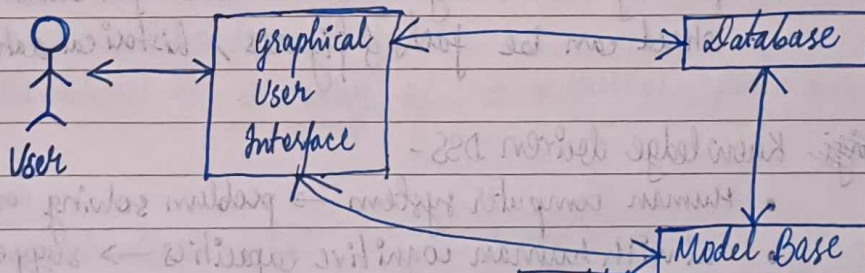 Graphical
User
Interface
Database
User
Model Base